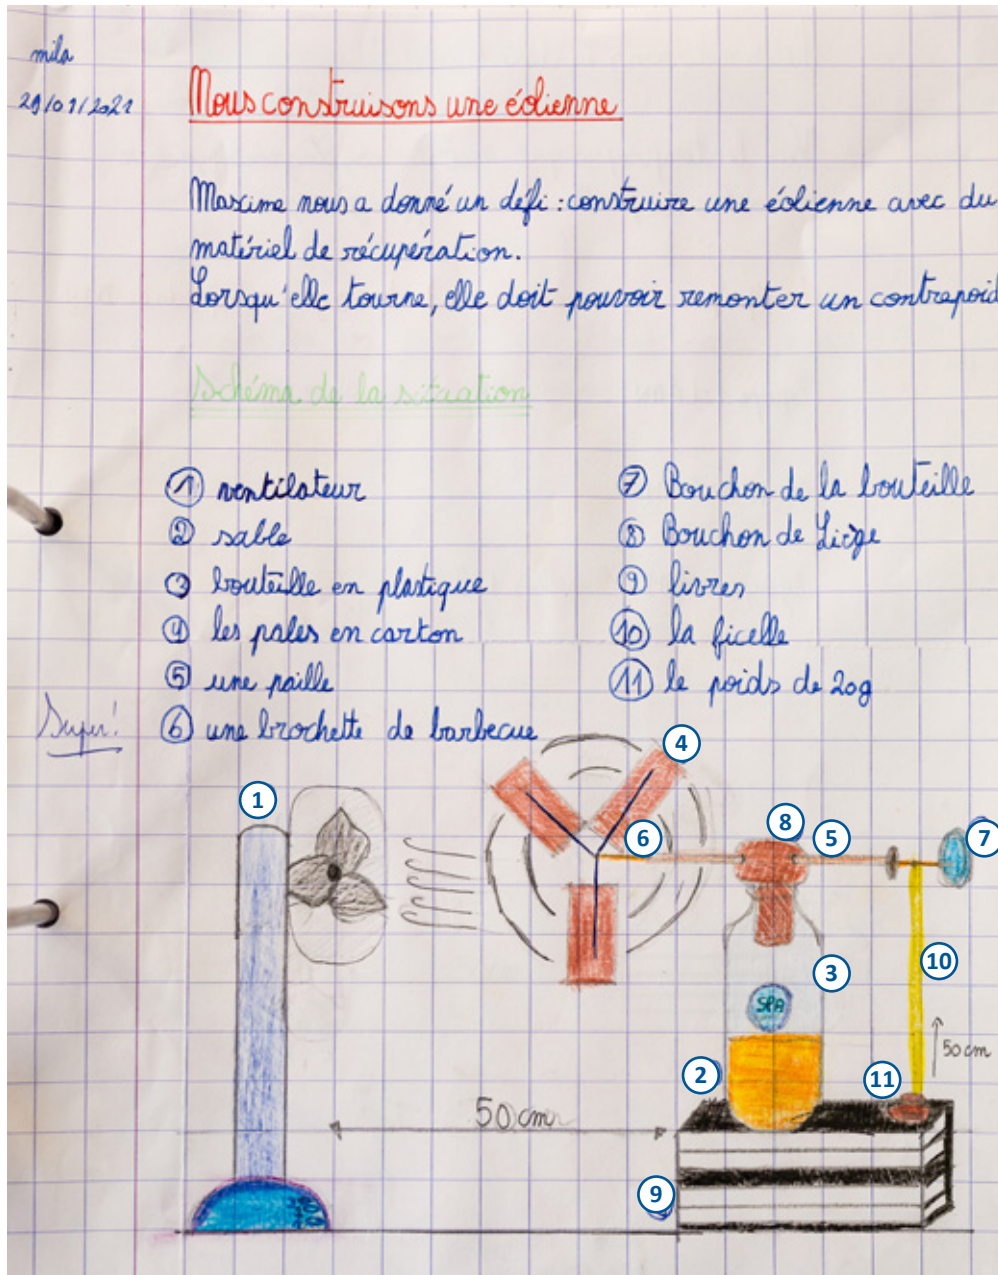 mila
29/01/2021
Nous construisons une éolienne
Maxime nous a donné un défi : construire une éolienne avec du
matériel de récupération.
Lorsqu'elle tourne, elle doit pouvoir remonter un contrepoid
Schéma de la situation
1 ventilateur
2 sable
3 bouteille en plastique
4 les pales en carton
5 une paille
6 une brochette de barbecue
7 Bouchon de la bouteille
8 Bouchon de Liège
9 livres
10 la ficelle
11 le poids de 20g
Super!
4
1
6
8
5
7
3
10
SPA
50 cm
2
11
50 cm
9